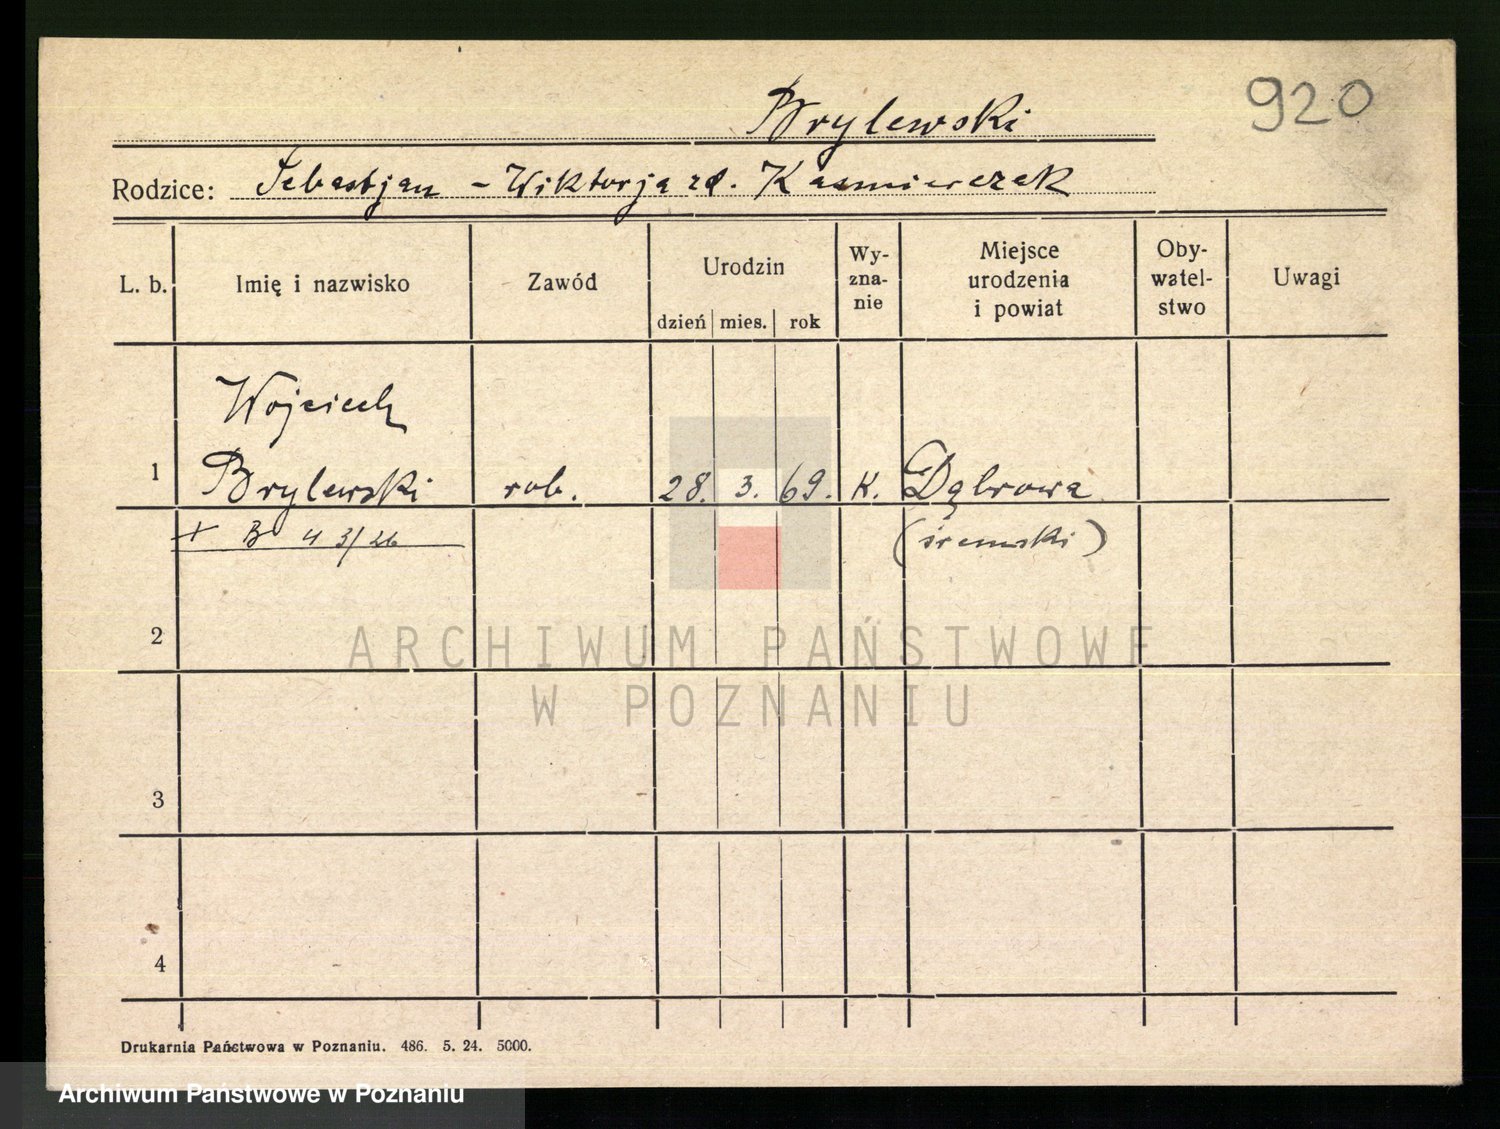 920
Brylewski
Rodzice: Sebastjan - Wiktorja zd. Kaźmierczak
L. b. Imię i nazwisko Zawód Urodzin dzień mies. rok Wy-zna-nie Miejsce urodzenia i powiat Oby-watel-stwo Uwagi
Wojciech
1 Brylewski rob. 28. 3. 69. K. Dąbrowa
+ B 4 3/26 (śremski)
2
ARCHIWUM PAŃSTWOWE
W POZNANIU
3
4
Drukarnia Państwowa w Poznaniu. 486. 5. 24. 5000.
Archiwum Państwowe w Poznaniu